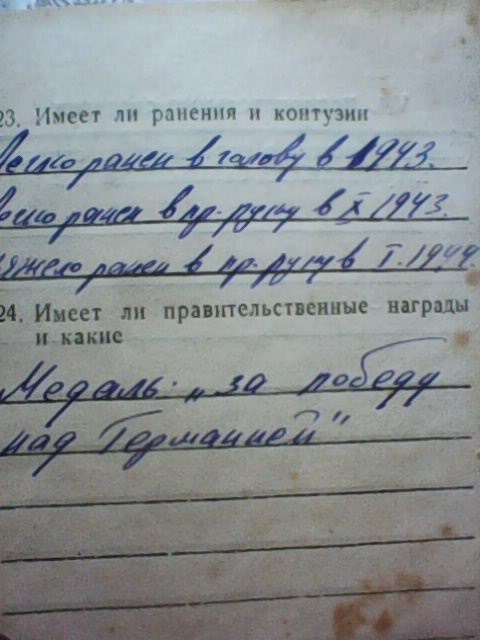 23. Имеет ли ранения и контузии
Легко ранен в голову в 1943.
Легко ранен в пр. руку в X 1943.
тяжело ранен в пр. руку в I. 1944.
24. Имеет ли правительственные награды
и какие
Медаль: „за победу
над Германией"